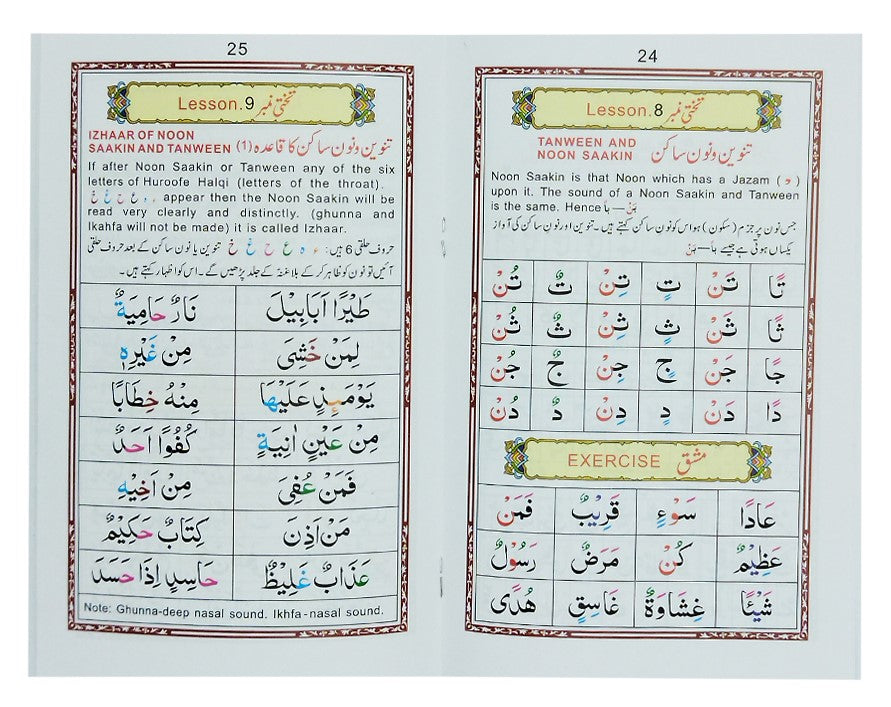 24
Lesson.8 تختی نمبر
TANWEEN AND
NOON SAAKIN
تنوین و نون ساکن
Noon Saakin is that Noon which has a Jazam ( ْ )
upon it. The sound of a Noon Saakin and Tanween
is the same. Hence
جس نون پر جزم (سکون) ہو اس کو نون ساکن کہتے ہیں۔ تنوین اور نون ساکن کی آواز
یکساں ہوتی ہے جیسے
تًا تَنْ تٍ تِنْ تٌ تُنْ
ثًا ثَنْ ثٍ ثِنْ ثٌ ثُنْ
جًا جَنْ جٍ جِنْ جٌ جُنْ
دًا دَنْ دٍ دِنْ دٌ دُنْ
EXERCISE مشق
عَادًا سَوْءٍ قَرِيْبٌ فَمَنْ
عَظِيْمٌ كُنْ مَرَضٌ رَسُوْلٌ
شَيْئًا غِشَاوَةٌ غَاسِقٍ هُدًى
25
Lesson.9 تختی نمبر
IZHAAR OF NOON
SAAKIN AND TANWEEN (1) تنوین و نون ساکن کا قاعدہ
If after Noon Saakin or Tanween any of the six
letters of Huroofe Halqi (letters of the throat).
ء ہ ع ح غ خ appear then the Noon Saakin will be
read very clearly and distinctly. (ghunna and
Ikahfa will not be made) it is called Izhaar.
حروف حلقی 6 ہیں: ء ہ ع ح غ خ تنوین یا نون ساکن کے بعد حروف حلقی
آئیں تو نون کو ظاہر کر کے بلا غنہ کے جلد پڑھیں گے۔ اس کو اظہار کہتے ہیں۔
طَيْرًا اَبَابِيْلَ نَارٌ حَامِيَةٌ
لِمَنْ خَشِىَ مِنْ غَيْرِهٖ
يَوْمَئِذٍ عَلَيْهَا مِنْهُ خِطَابًا
مِنْ عَيْنٍ اٰنِيَةٍ كُفُوًا اَحَدٌ
فَمَنْ عُفِىَ مِنْ اَخِيْهِ
مَنْ اَذِنَ كِتَابٌ حَكِيْمٌ
عَذَابٌ غَلِيْظٌ حَاسِدٍ اِذَا حَسَدَ
Note: Ghunna-deep nasal sound. Ikhfa-nasal sound.